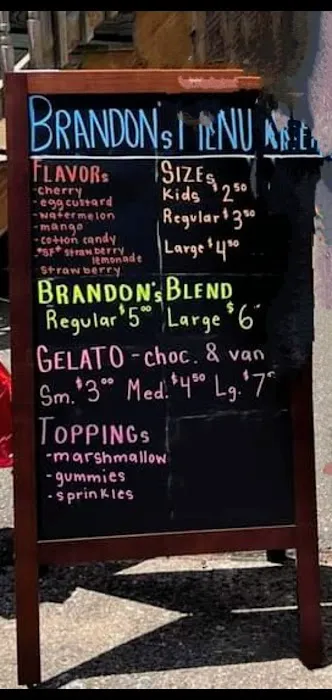 BRANDON's MENU
FLAVORs
-cherry
-eggcustard
-watermelon
-mango
-cotton candy
*SF* strawberry
lemonade
strawberry
SIZEs
Kids $2⁵⁰
Regular $3⁵⁰
Large $4⁵⁰
BRANDON's BLEND
Regular $5⁰⁰ Large $6
GELATO - choc. & van
Sm. $3⁰⁰ Med. $4⁵⁰ Lg. $7
TOPPINGs
-marshmallow
-gummies
-sprinkles